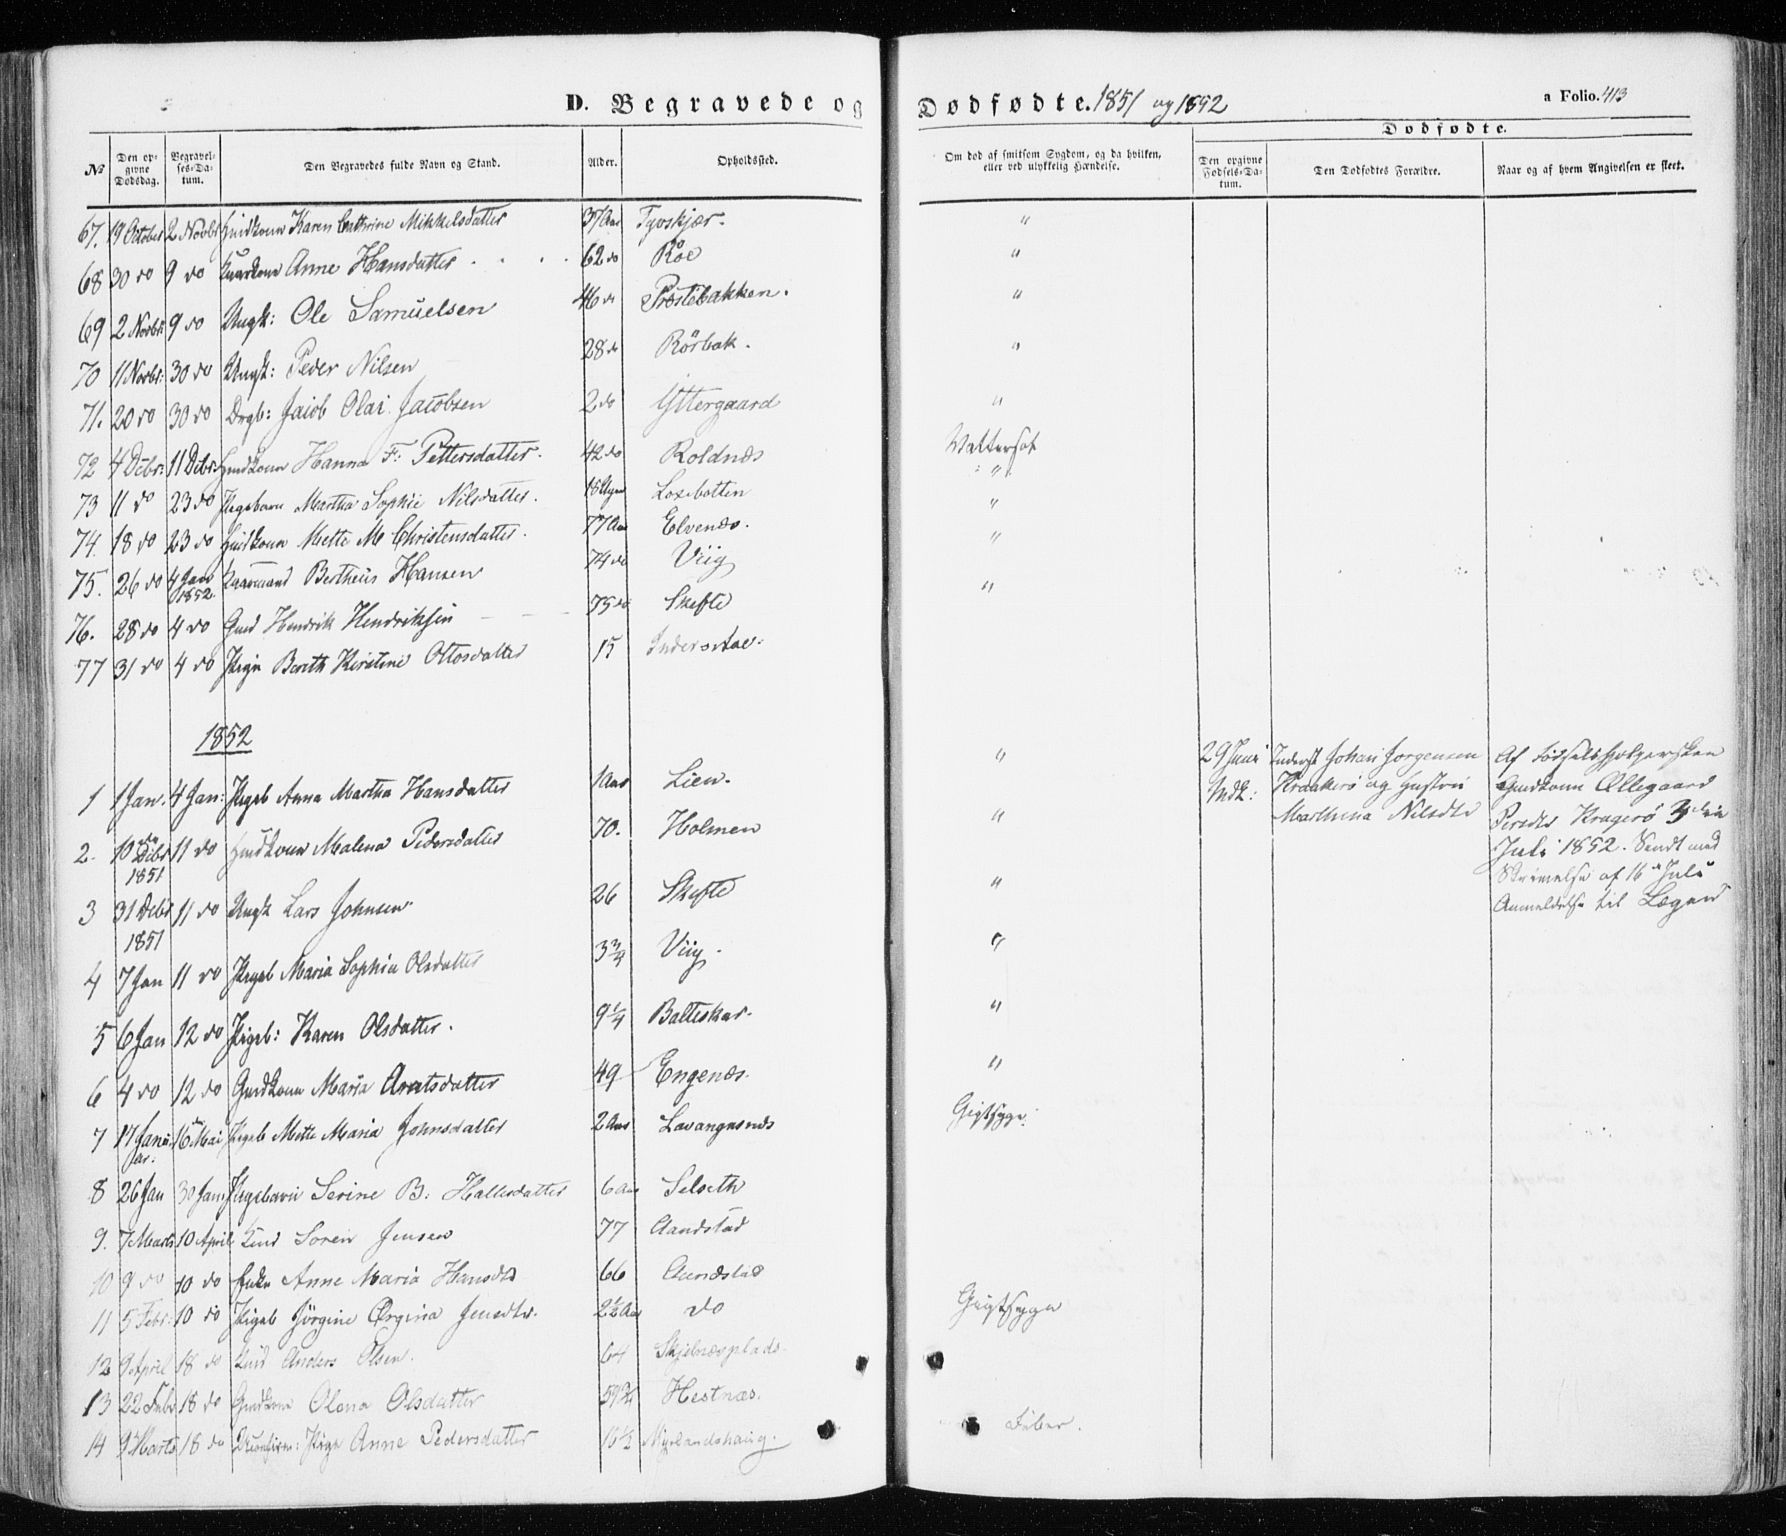 D. Begravede og Dødfødte. 1851 og 1852
a Folio. 413
Dødfødte.
№ Den opgivne Dødsdag. Begravelses-Datum. Den Begravedes fulde Navn og Stand. Alder. Opholdssted. Om død af smitsom Sygdom, og da hvilken, eller ved ulykkelig Hændelse. Den opgivne Fødsels-Datum. Den Dødfødtes Forældre. Naar og af hvem Angivelsen er skeet.
67. 19 October 2 Novbr Huusk Karen Cathrine Mikkelsdatter 37 Aar Tyvskjær. "
68 30 do 9 do Anne Hansdatter 62 do Röe "
69 2 Novbr: 9 do Ungk: Ole Samuelsen 46 do Præstebakken. "
70 11 Novbr: 30 do Ungk: Peder Nilsen 28 do Rörbak. "
71. 20 do 30 do Drgb: Jacob Olai Jacobsen 2 do Yttergaard "
72 4 Debr: 11 Debr: Hanna F: Pettersdatter. 42 do Roldnæs Wattersot
73 11 do 23 do Pigebarn Martha Sophie Nilsdatter. 18 Uger Loxebotten "
74. 18 do 23 do Mette M Christensdatter. 77 Aar Elvenæs. "
75. 26 do 4 Jan 1852 Kaarmand Bertheus Hansen 74 do Viig "
76. 28 do 4 do Gmd Hendrik Hendriksen 75 do Skefte "
77 31 do 4 do Pige Bereth Kirstine Ottosdatter 15
1852
1 1 Jan. 4 Jan: Pigeb Anna Martha Hansdatter 1 Aar Lien. "
2. 10 de Debr 1851 11 do Malena Pedersdatter 70. Holmen "
3 31 Debr 1851 11 do Ungk Lars Johnsen 26 Skefte "
4 7 Jan 11 do Pigeb Maria Sophia Olsdatter 3 3/4 Viig. "
5 6 Jan 12 do Pigeb: Karen Olsdatter. 9 1/4 Balteskar. "
6 4 do 12 do Gmdkone Maria Arntsdatter 49 Engenæs. "
7 17 Januar: 16 Mai Pigeb Mette Maria Johnsdatter 2 Aar Lavangsnæs Gigtsyge.
8 26 Jan 30 Jan Pigebarn Serine B: Hallesdatter 6 Aar Selseth
9. 7 Marts 10 April Sören Jensen 77 Aandstad
10 9 do 10 do Enke Anne Maria Hansdtr 66 Aandstad
11 5 Febr: 10 do Pigeb Jörgine Ørgina Jensdtr. 2 1/2 Aar do Gigtsyge
12 9 April 18 do Anders Olsen. 64 Skjelnesplads
13 22 Febr 18 do Gmdkone Olena Olsdatter 59 3/4 Hestnæs.
14 9 Marts 18 do Pige Anne Pedersdatter 16 1/2 Myrlandshaug. Feber.
29 Juni Inderst Johan Jorgensen
Mdk: Kraakerö og Hustru
Marthina Nilsdtr
Af Fødselshjelpersken
Gmdkone Ellegaard
Persdtr Kragerö 3 die
Juli 1852. Sendt med
Skrivelse af 16 Juli
Anmeldelse til Lægen